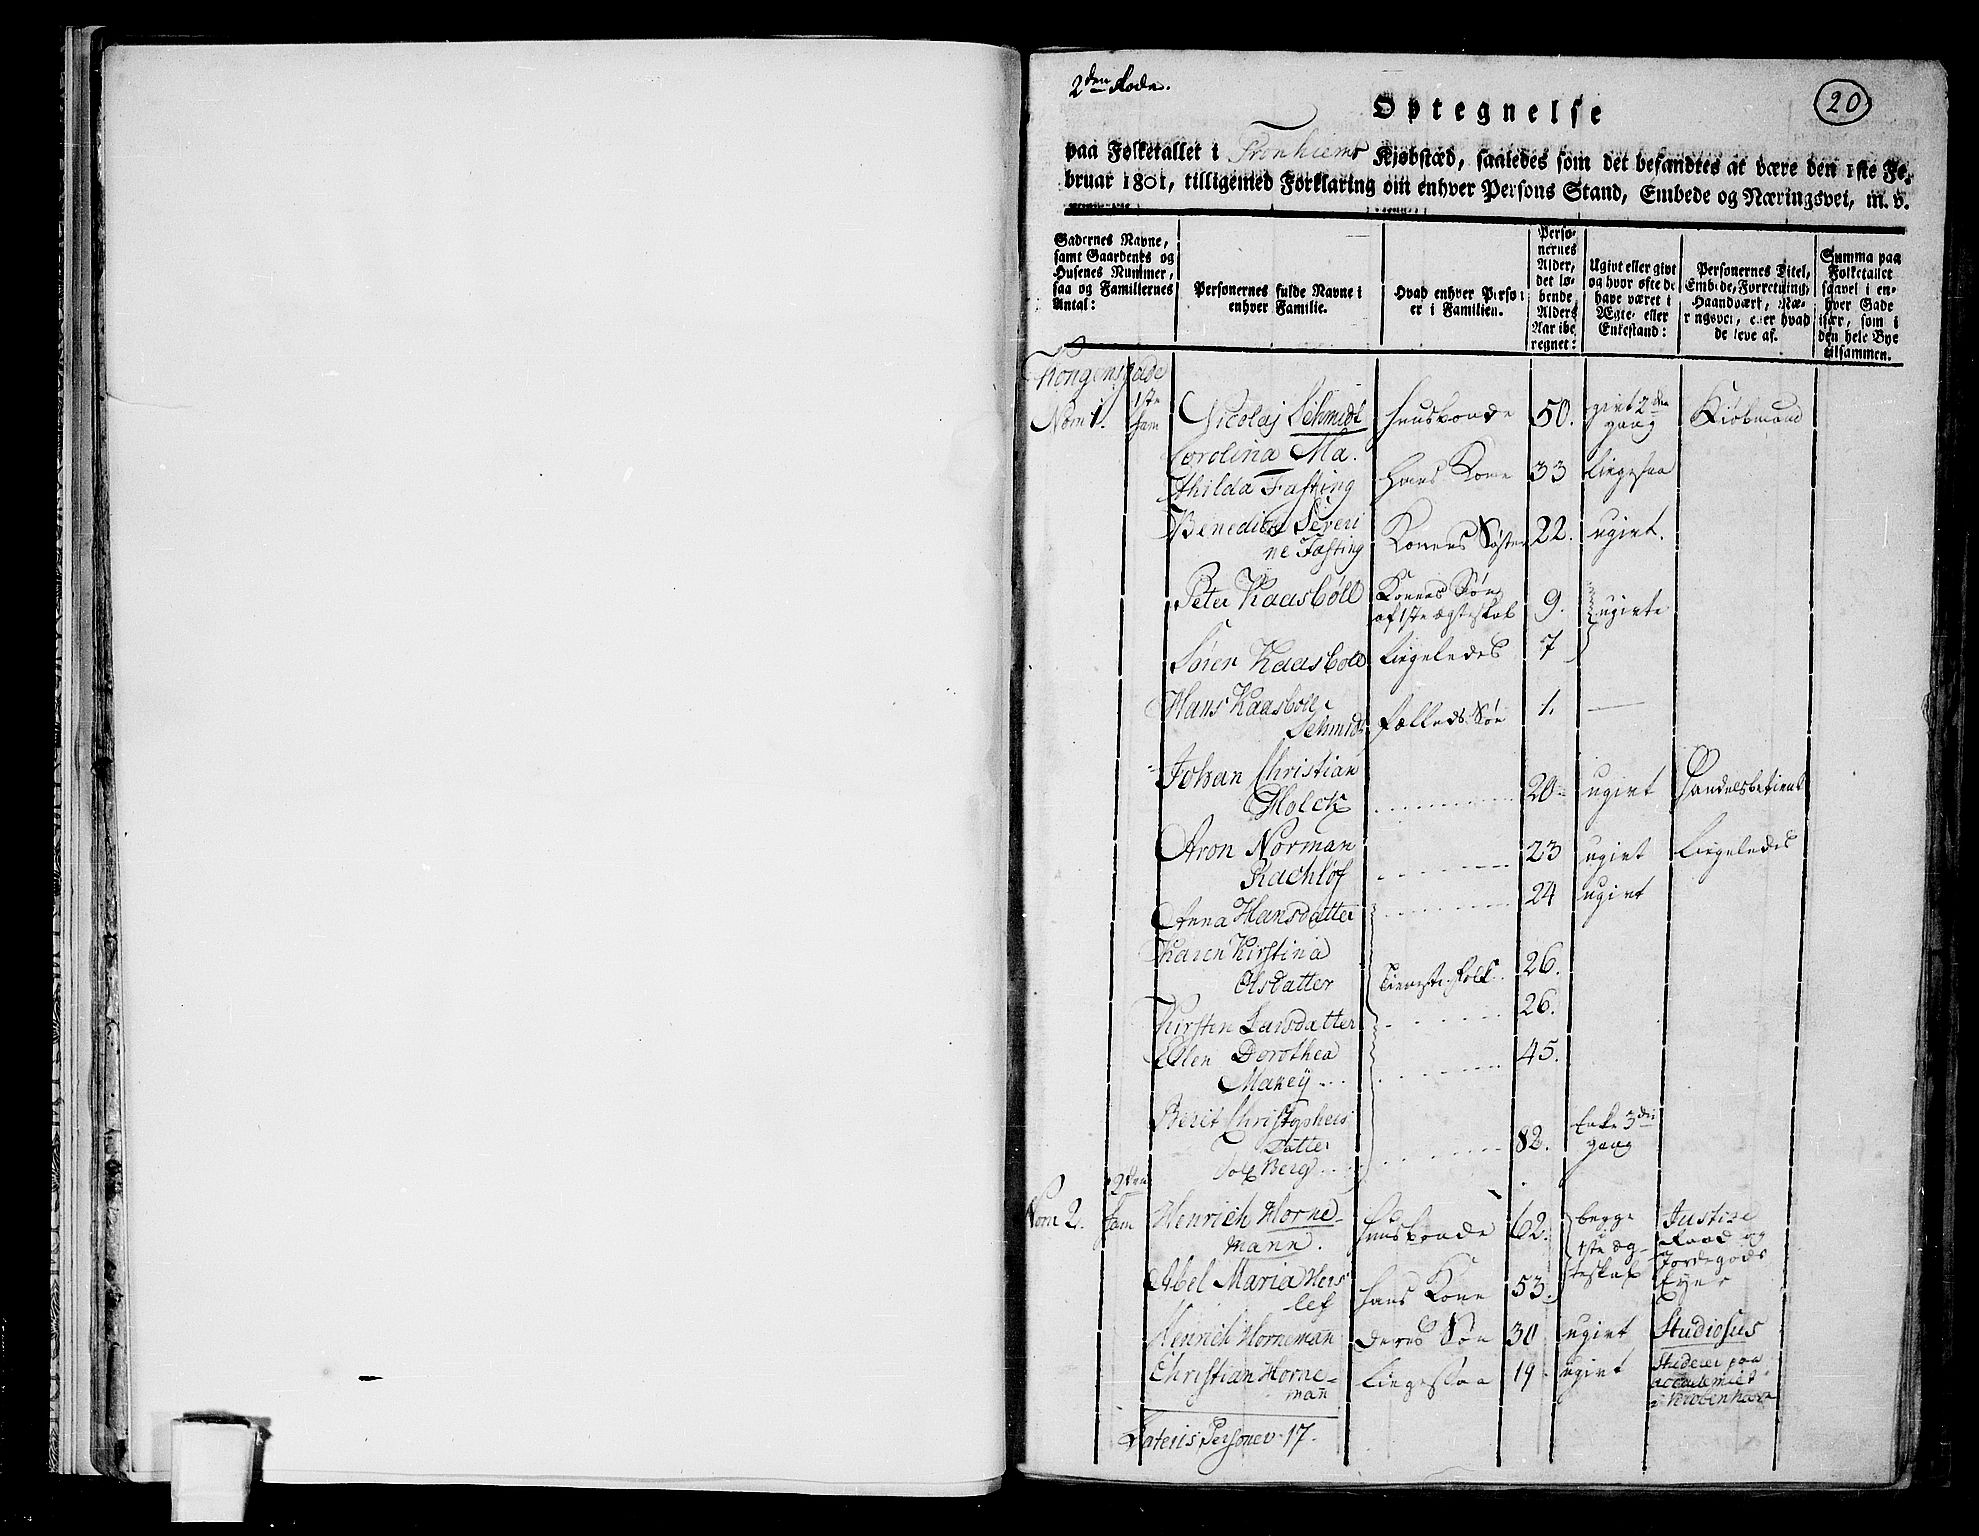 2den Rode.
20
Optegnelse
paa Folketallet i Tronhiems Kjøbstæd, saaledes som det befandtes at være den 1ste Fe-
bruar 1801, tilligemed Forklaring om enhver Persons Stand, Embede og Næringsvei, m. v.
Gadernes Navne,
samt Gaardenes og
Husenes Nummer,
saa og Familiernes
Antal:
Personernes fulde Navne i
enhver Familie.
Hvad enhver Person
er i Familien.
Perso-
nernes
Alder,
det lø-
bende
Alders
Aar ibe-
regnet:
Ugivt eller givt
og hvor ofte de
have været i
Ægte- eller
Enkestand:
Personernes Titel,
Embede, Forretning,
Haandværk, Næ-
ringsvei, eller hvad
de leve af.
Summa paa
Folketallet
saavel i en-
hver Gade
især, som i
den hele Bye
tilsammen.
Kongensgade
Nom 1. 1ste Fam Nicolaj Schmidt Huusbonde 50. givt 2den gang Kiøbmand
Carolina Ma.
thilda Fasting hans Kone 33 ligesaa
Benedicta Severi
ne Fasting Konens Søster 22. ugivt.
Peter Kaasbøll Konens Søn af 1ste ægteskab 9. ugivte
Søren Kaasbøll ligeledes 7
Hans Kaasbøll
Schmidt fælleds Søn 1. —
Johan Christian
Molck 20 ugivt Handelsbetient
Aron Norman
Rachløf 23 ugivt ligeledes
Anna Hansdatter 24 ugivt
Karen Kirstina
Olsdatter Tieneste Folk 26.
Kirsten Larsdatter 26.
Ellen Dorothea
Makey 45.
Berit Christophers
Datter
Berg 82. Enke 3die gang
Nom 2. 2den Fam Henrich Horne-
mann. Huusbonde 62. begge 1ste æg-teskab Justice Raad og Jordegods Eyer
Abel Maria Hers
lef hans Kone 53.
Henrich Horneman deres Søn 30 ugivt Studiosus
Christian Horne-
man ligesaa 19 ugivt Studerer paa accademiet i Kiøbenhavn
Lateris Personer 17.